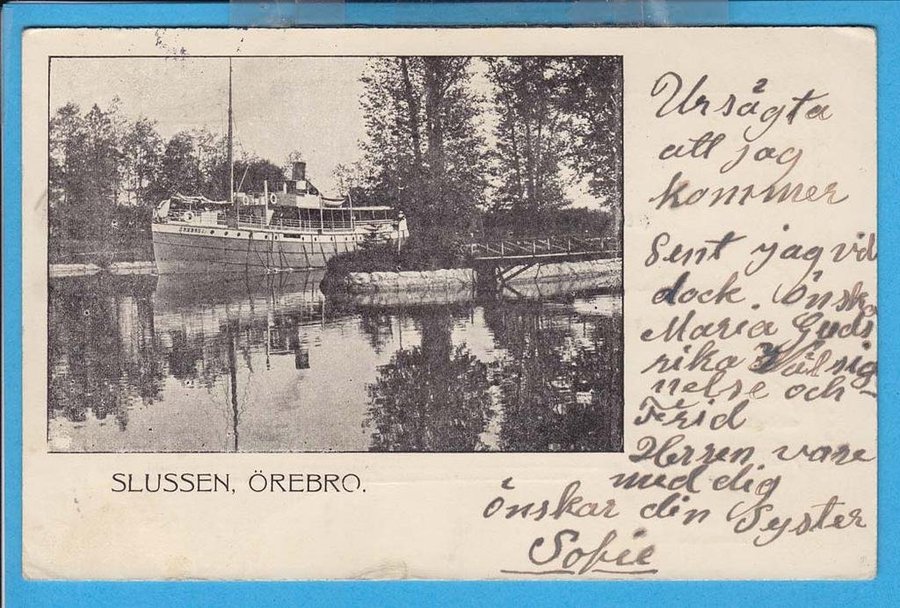 ÖREBRO I
Ursägta
att jag
kommer
Sent jag vill
dock. Önska
Maria Guds
rika Välsig
nelse och
Frid
Herren vare
med dig
önskar din Syster
Sofie
SLUSSEN, ÖREBRO.